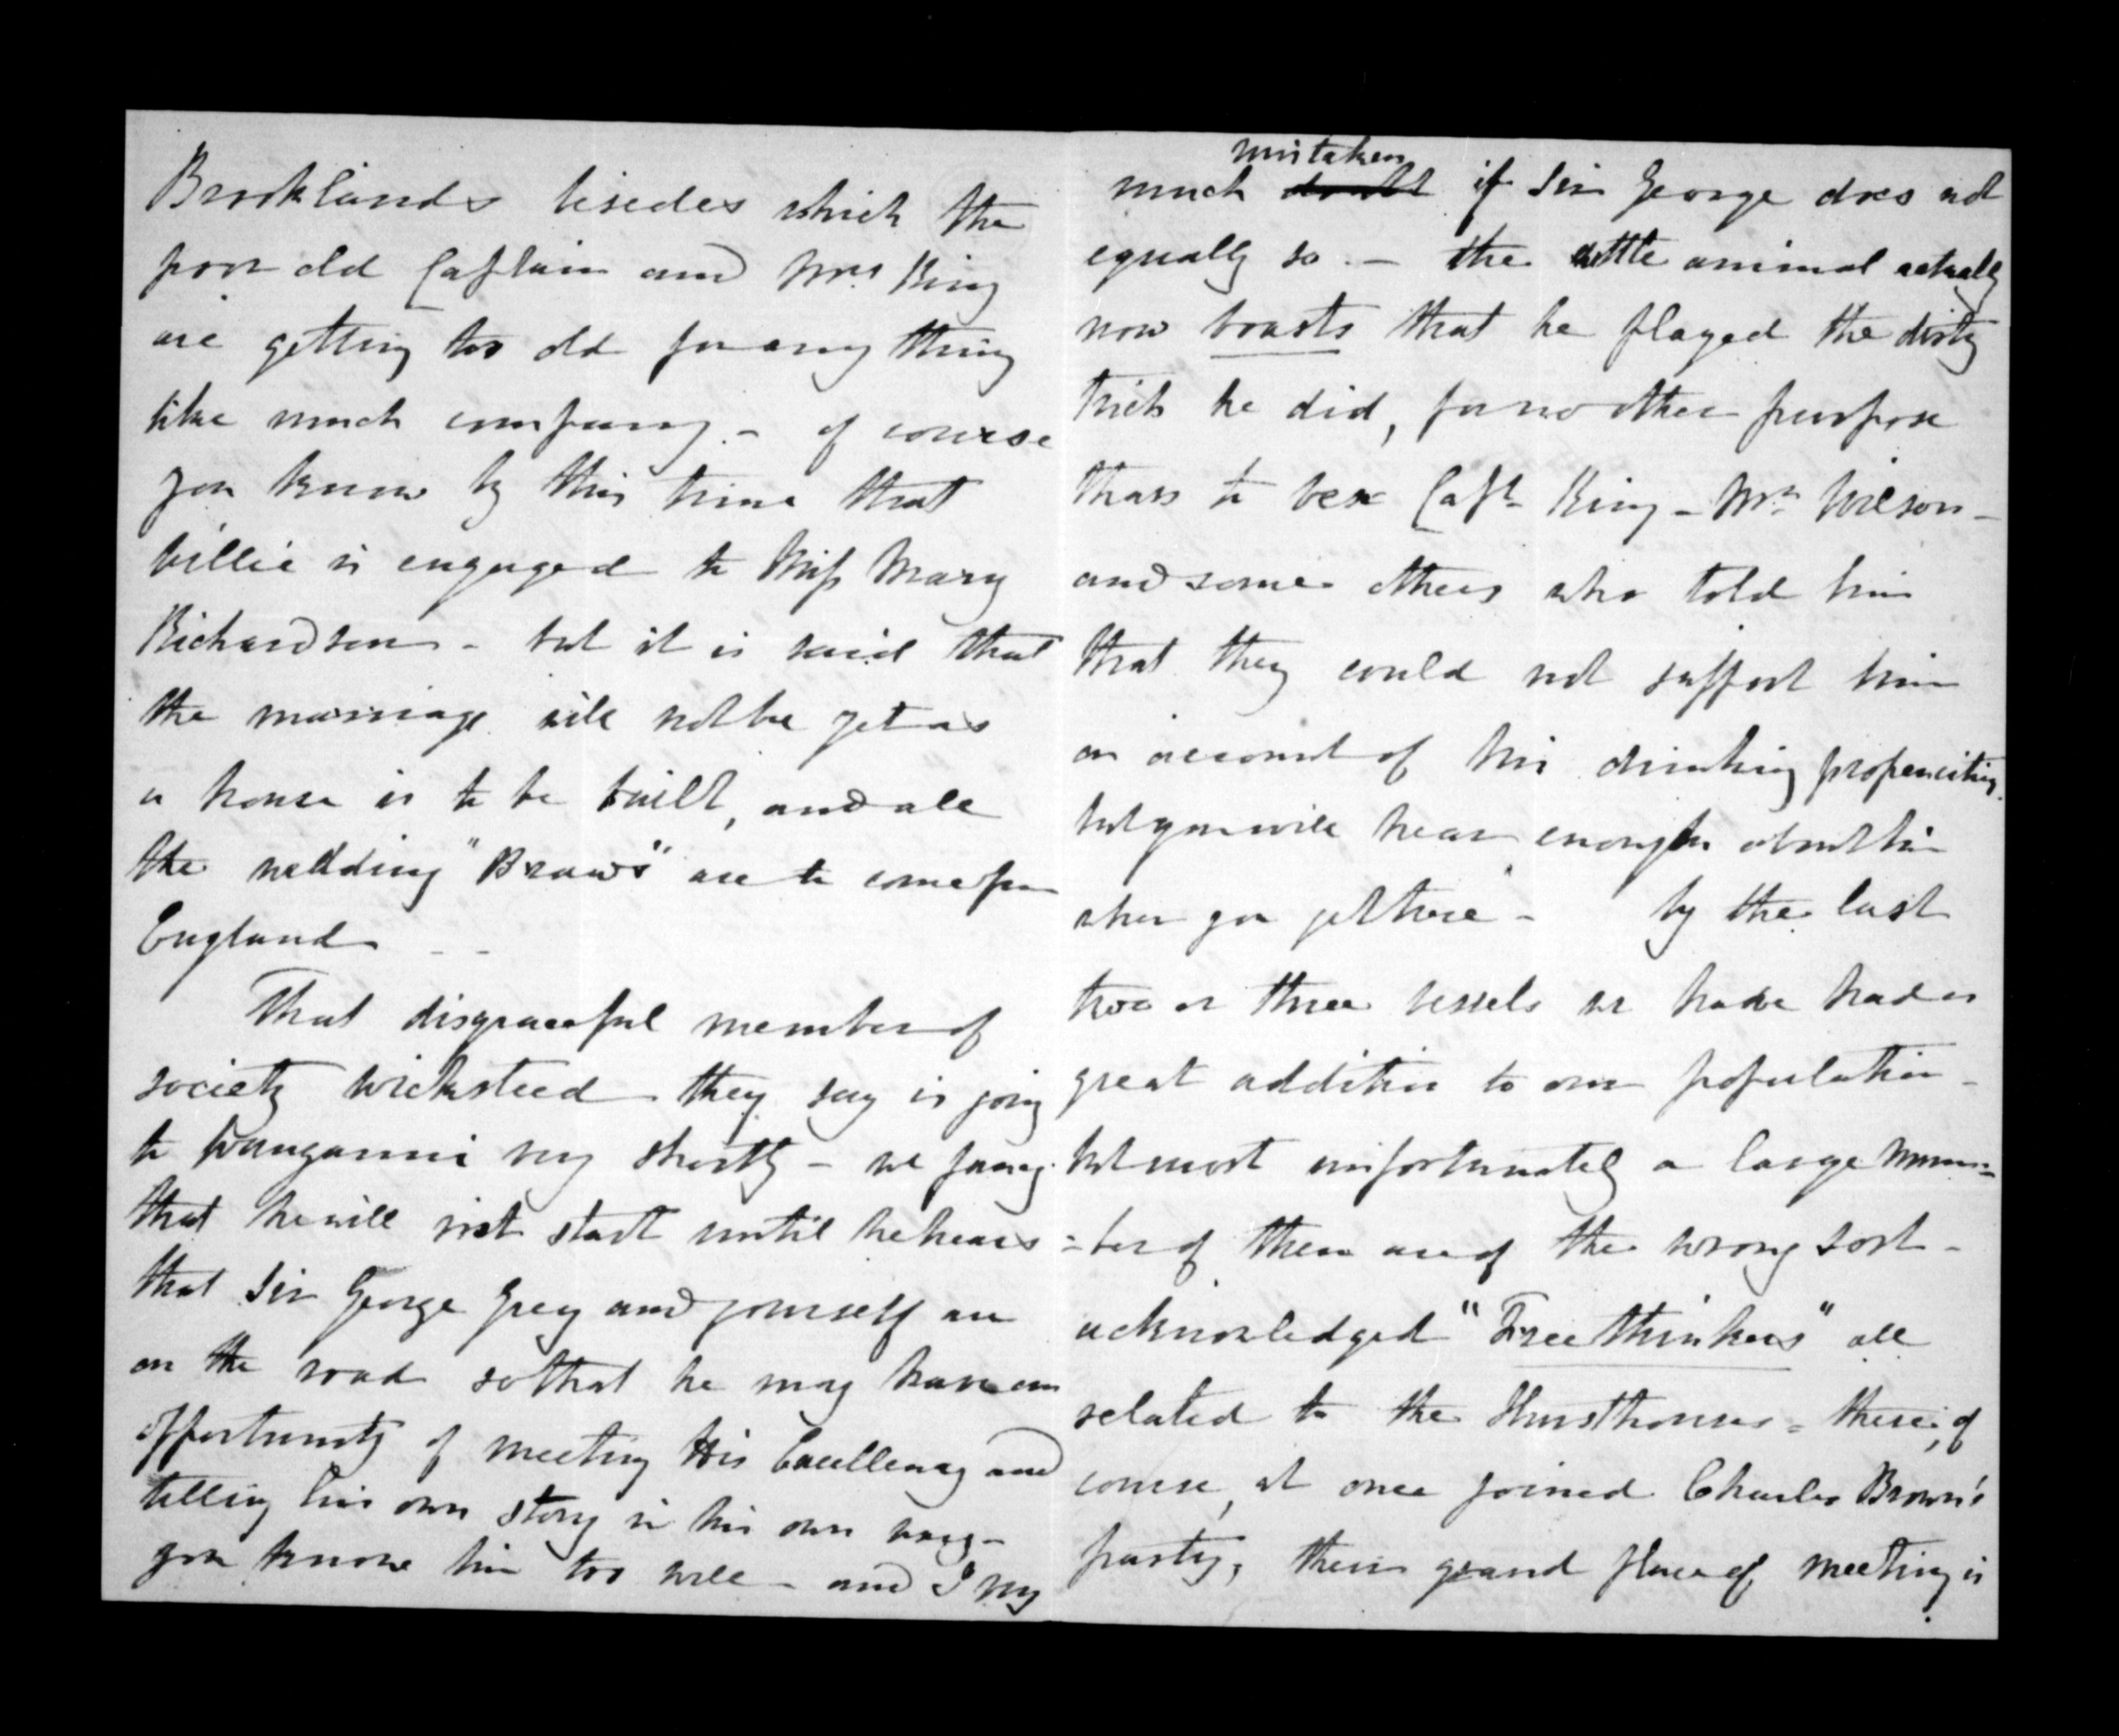 Brooklands besides which the
poor old Captain and Mrs. King
are getting too old for any thing
like much company. - of course
you know by this time that
Willie is engaged to Miss Mary
Richardson - but it is said that
the marriage will not be yet as
a house is to be built, and all
the wedding "Braws" are to come from
England - -
That disgraceful member of
society Wicksteed they say is going
to Wanganui very shortly - we fancy
that he will not start until he hears
that Sir George Grey and yourself are
on the road so that he may have an
opportunity of meeting His Excellency and
telling his own story in his own way -
you know him too well - and I my
mistaken
much doubt if Sir George does not
equally so. - the little animal actually
now boasts that he played the dirty
trick he did, for no other purpose
than to vex Capt. King - Mr. Wilson -
and some others who told him
that they could not support him
on account of his drinking propencities.
but you will hear enough about him
when you get here - by the last
two or three vessels we have had a
great addition to our population -
but most unfortunately a large num=
=ber of them are of the wrong sort -
acknowledged "Free thinkers" all
related to the Hursthouses - these, of
course, at once joined Charles Brown's
party, their grand place of meeting is